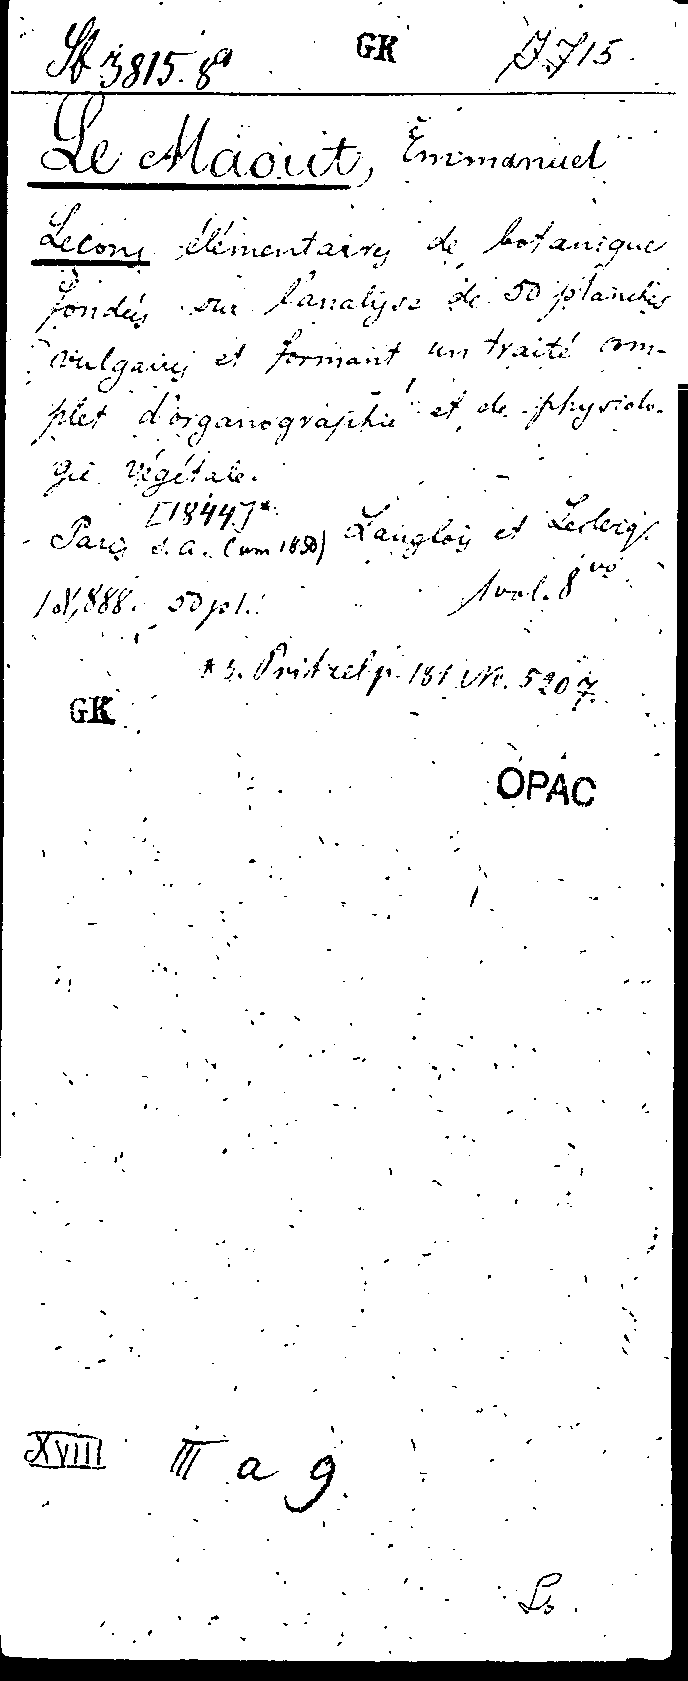 St 3815. 8° GK J. J 15.
Le Maout, Emmanuel
Leçons élémentaires de botanique
fondées sur l'analyse de 50 planches
vulgaires et formant un traité com-
plet d'organographie et de physiolo-
gie végétale.
[1844]*
Paris s. a. (um 1850) Langlois et Leclerq.
888. 50 pl. 1 vol. 8vo
* s. Pritzel p. 181 No. 5207.
GK
OPAC
XVIII III a 9.
Ls.